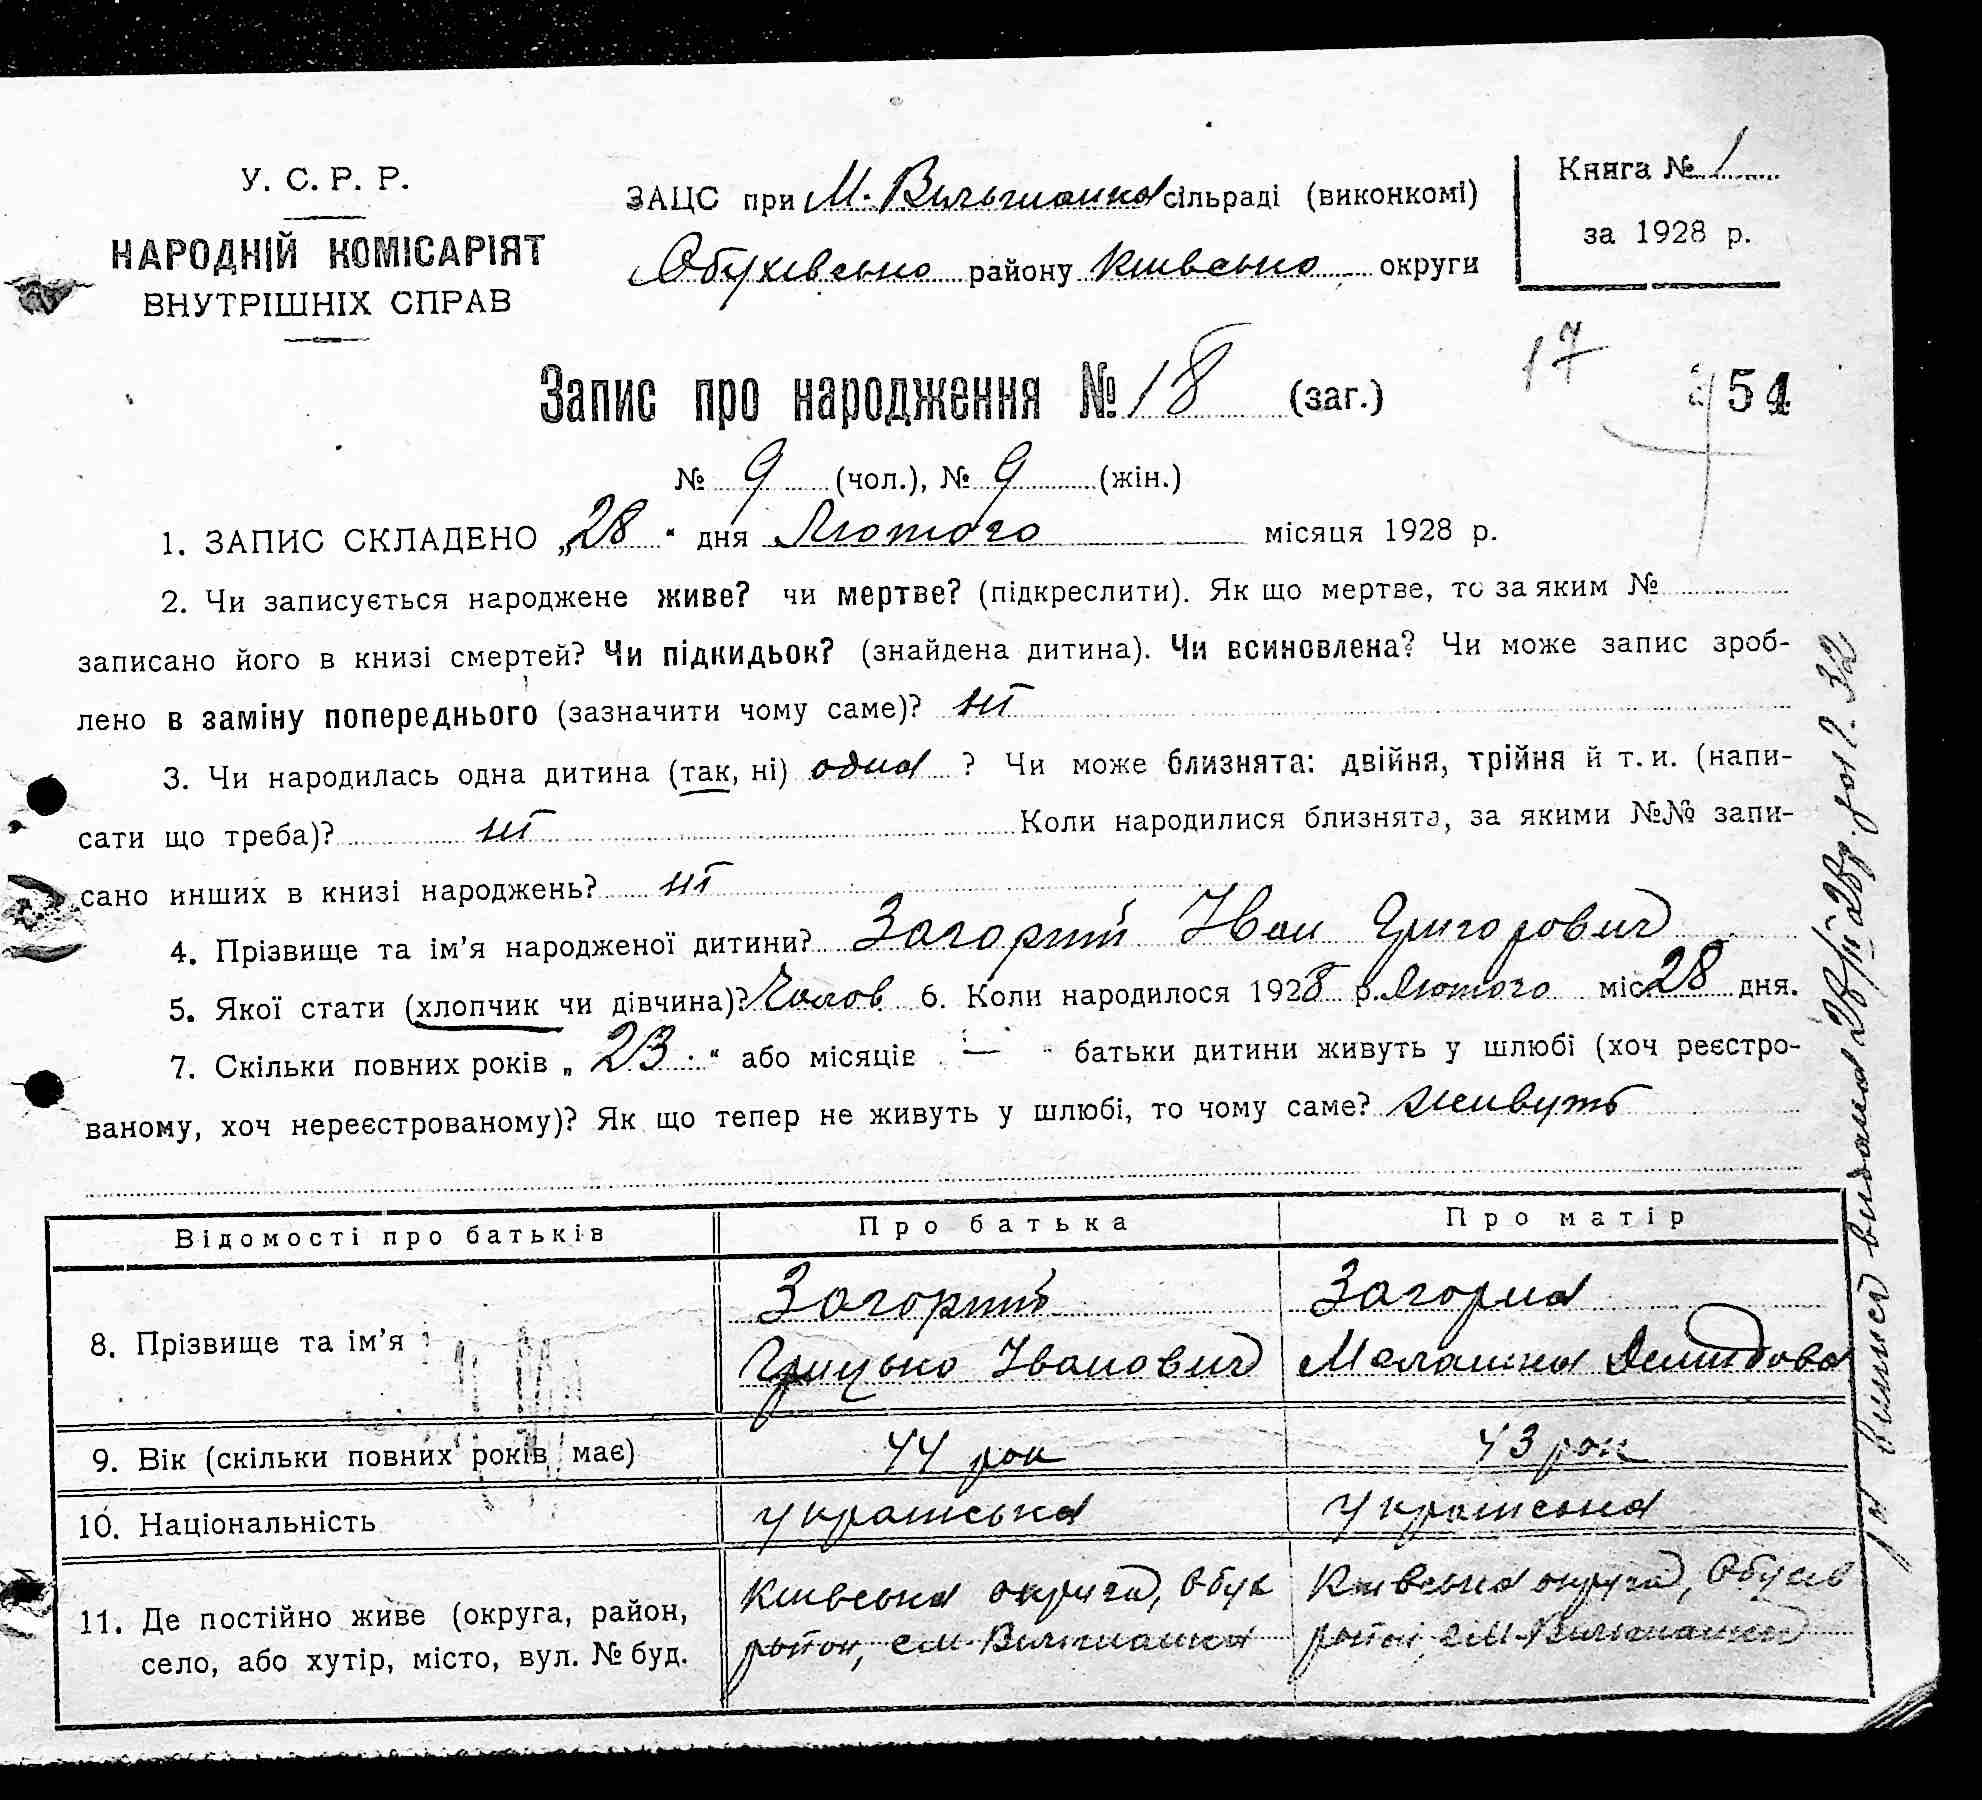 У. С. Р. Р.
НАРОДНІЙ КОМІСАРІЯТ
ВНУТРІШНІХ СПРАВ
ЗАЦС при М. Вільшанка сільраді (виконкомі)
Обухівсько району Київсько округи
Книга № 1
за 1928 р.
Запис про народження № 18 (заг.)
17
54
№ 9 (чол.), № 9 (жін.)
1. ЗАПИС СКЛАДЕНО „28“ дня Лютого місяця 1928 р.
2. Чи записується народжене живе? чи мертве? (підкреслити). Як що мертве, то за яким №
записано його в книзі смертей? Чи підкидьок? (знайдена дитина). Чи всиновлена? Чи може запис зроб-
лено в заміну попереднього (зазначити чому саме)? ні
3. Чи народилась одна дитина (так, ні) одна ? Чи може близнята: двійня, трійня й т. и. (напи-
сати що треба)? ні Коли народилися близнята, за якими №№ запи-
сано инших в книзі народжень? ні
4. Прізвище та ім’я народженої дитини? Загорий Іван Григорович
5. Якої стати (хлопчик чи дівчина)? Чолов. 6. Коли народилося 1928 р. Лютого міс. 28 дня.
7. Скільки повних років „23“ або місяців „—“ батьки дитини живуть у шлюбі (хоч реєстро-
ваному, хоч нереєстрованому)? Як що тепер не живуть у шлюбі, то чому саме? живуть
Відомості про батьків Про батька Про матір
8. Прізвище та ім’я
Загорий
Грицько Іванович
Загорна
Малашка Демидова
9. Вік (скільки повних років має) 44 рок 43 рок
10. Національність Українська Українська
11. Де постійно живе (округа, район,
село, або хутір, місто, вул. № буд.
Київська округа, Обух
район, с М-Вільшанка
Київська округа, Обухів
район, с М-Вільшанка
виписка видана 28/II 28р.